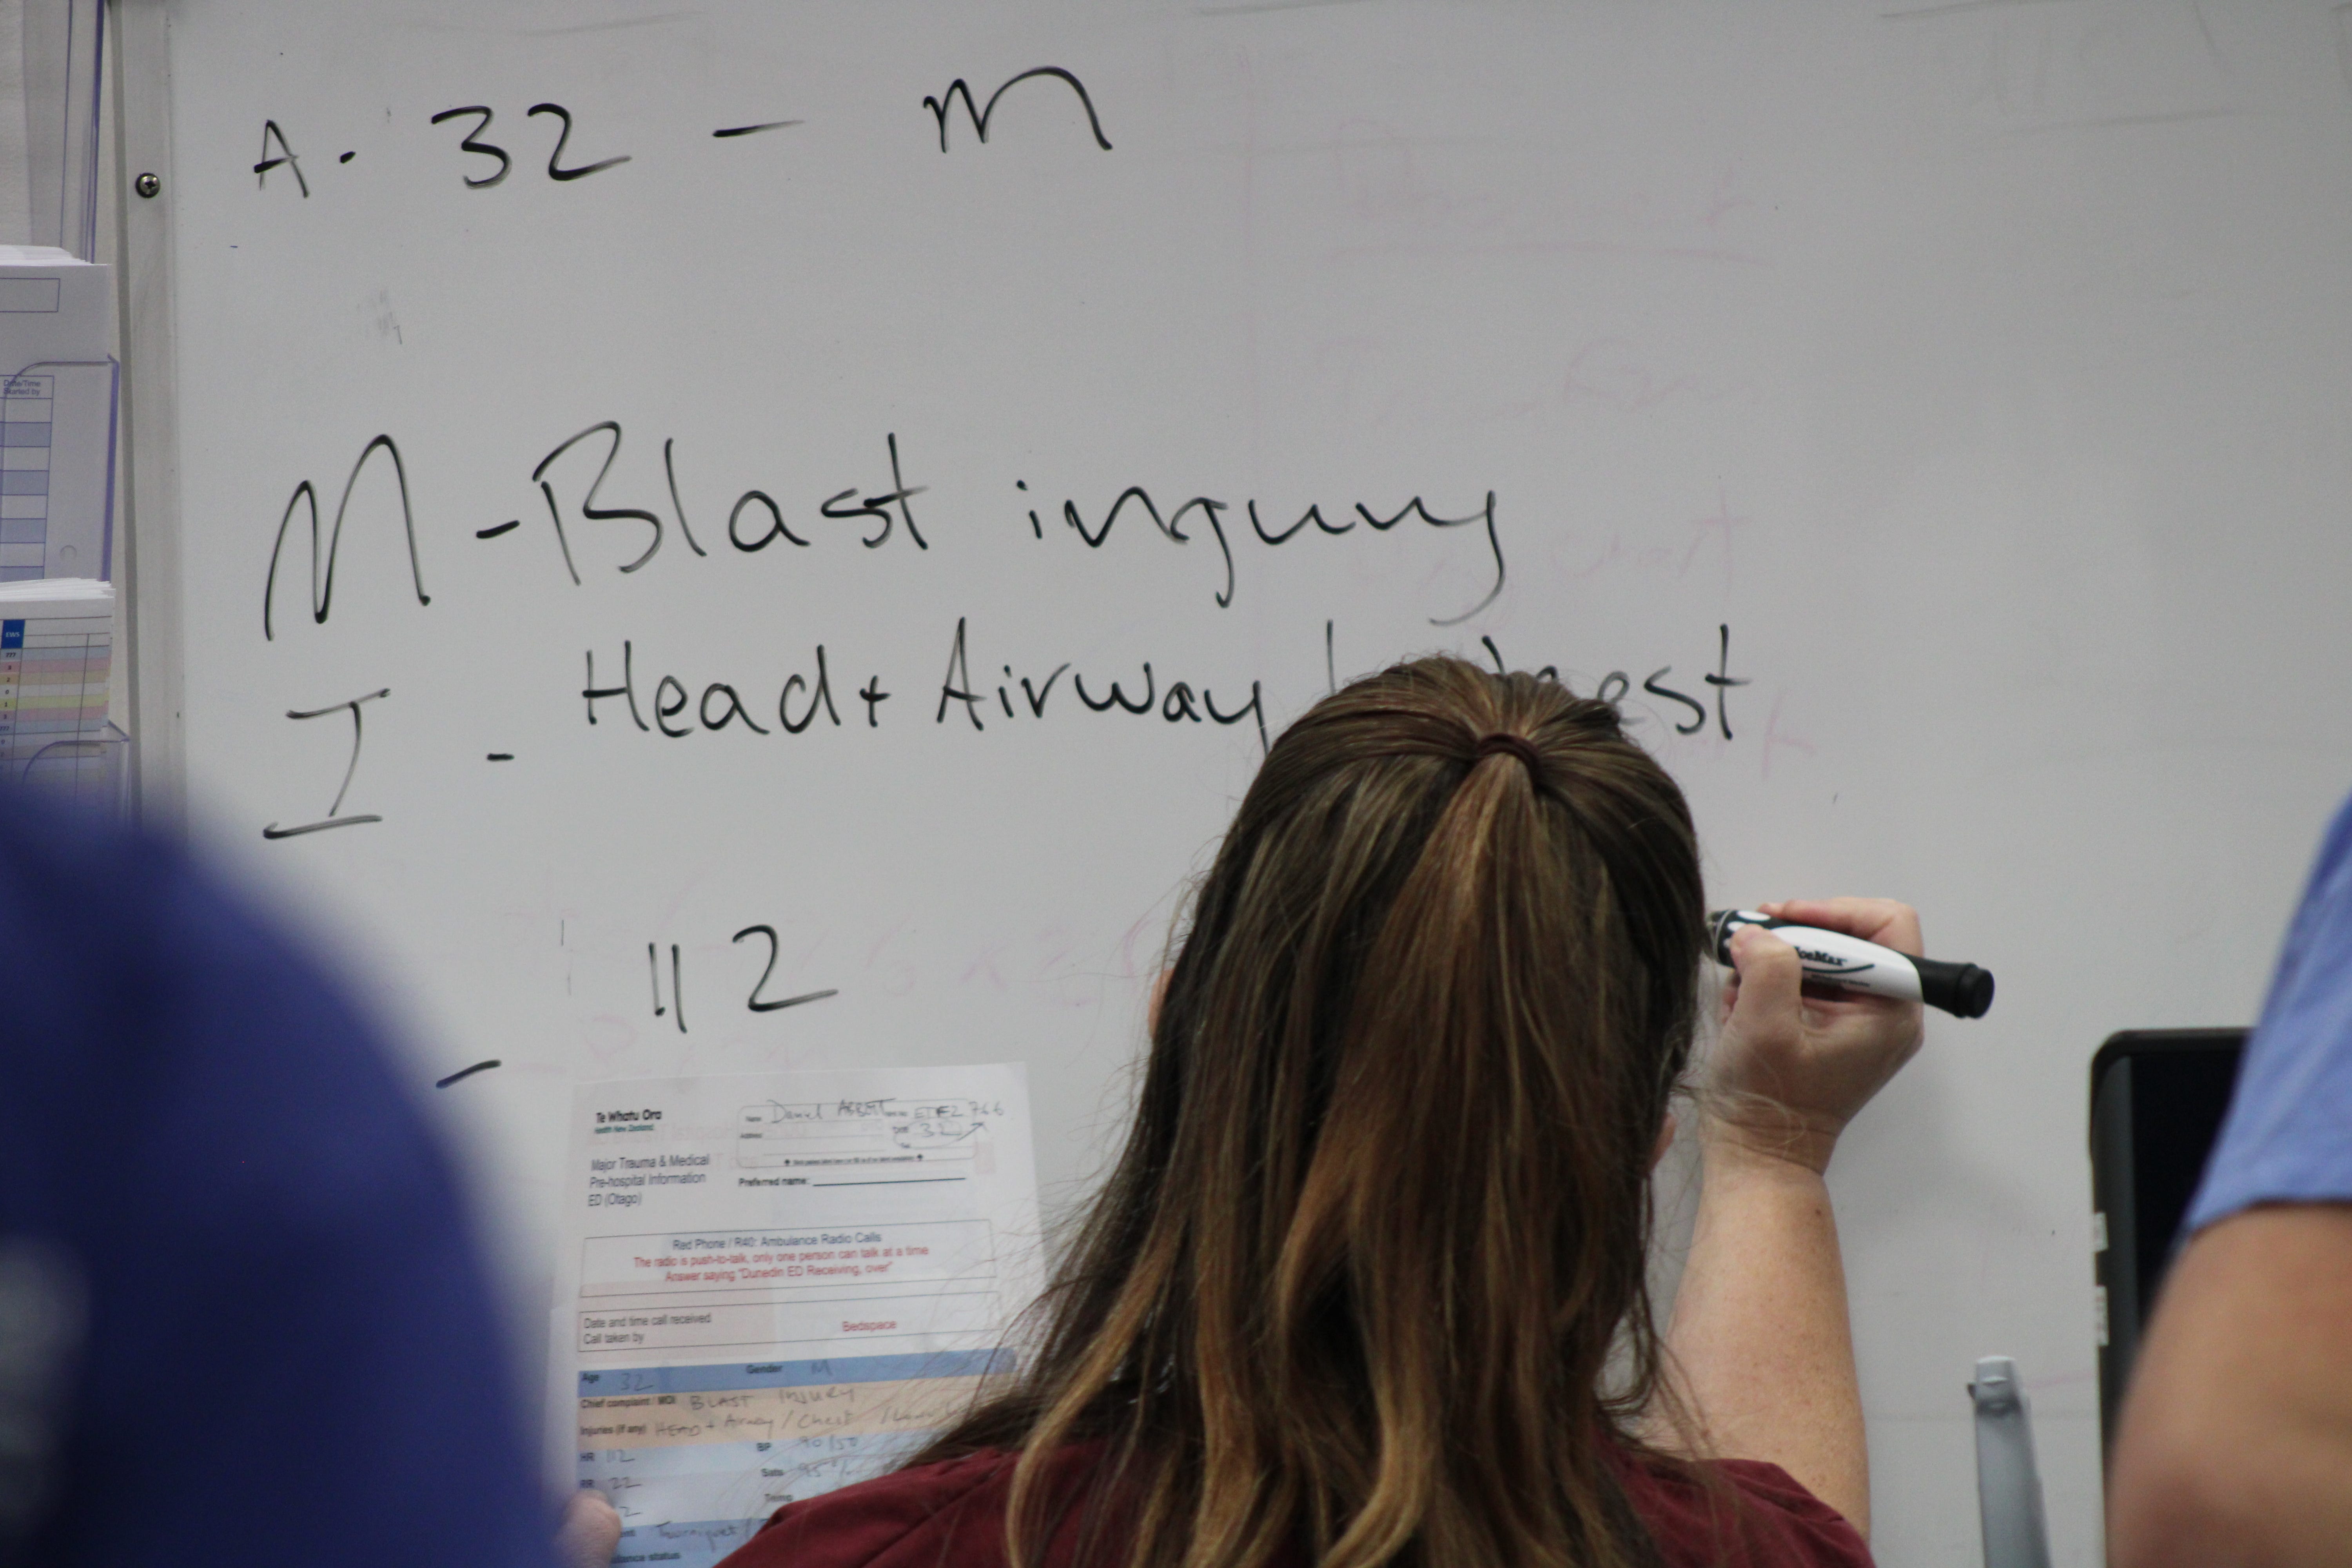 A. 32 - M
M - Blast injury
I - Head + Airway
112
-
Te Whatu Ora
Health New Zealand
Name
Address
Major Trauma & Medical
Pre-hospital Information
ED (Otago)
32
Preferred name:
Red Phone / R40: Ambulance Radio Calls
The radio is push-to-talk, only one person can talk at a time
Answer saying "Dunedin ED Receiving, over"
Date and time call received
Call taken by
Bedspace
Age 32 Gender M
Chief complaint / MOI BLAST INJURY
Injuries (if any) HEAD + Airway / Chest /
HR 112 BP 90/50
RR 22 Sats 95%
Temp
Tourniquet /
Date/Time
Started by
EWS